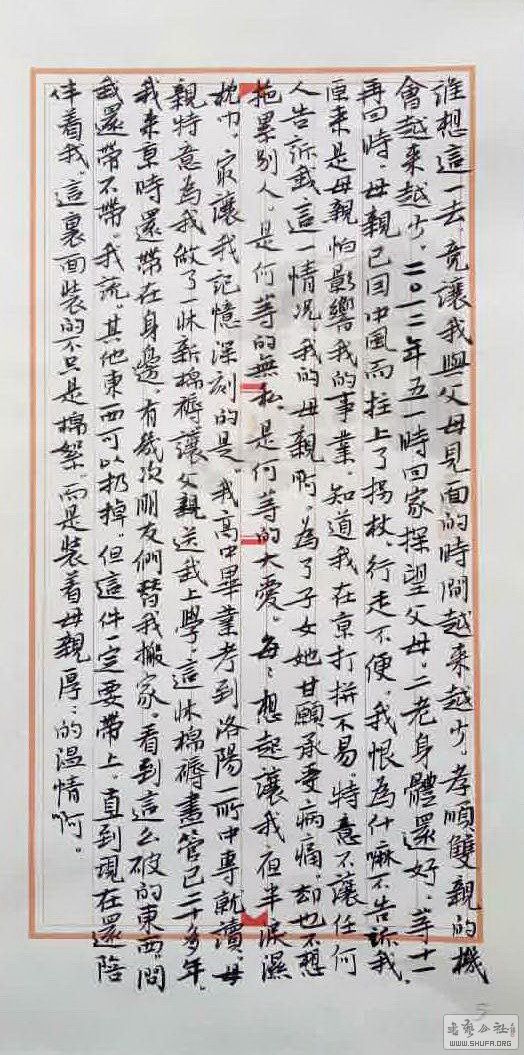 谁想這一去,竟讓我與父母見面的時間越来越少,孝順雙親的機
會越来越少。二〇一二年五一時回家探望父母,二老身體還好,等十一
再回時,母親已因中風而拄上了拐杖,行走不便,我恨為什嘛不告訴我,
原来是母親怕影響我的事業,知道我在京打拼不易,特意不讓任何
人告訴我這一情况,我的母親啊,為了子女她甘願承受病痛,却也不想
拖累别人,是何等的無私,是何等的大愛。每々想起讓我夜半淚濕
枕巾。最讓我記憶深刻的是,我高中畢業考到洛陽一所中專就讀,母
親特意為我做了一床新棉褥讓父親送我上學,這床棉褥盡管已二十多年,
我来京時還帶在身邊,有幾次朋友們替我搬家,看到這么破的東西,問
我還帶不帶,我説,其他東西可以扔掉,但這件一定要帶上,直到現在還陪
伴着我。這裏面裝的不只是棉絮,而是裝着母親厚々的温情啊。
5
書藝公社
WWW.SHUFA.ORG